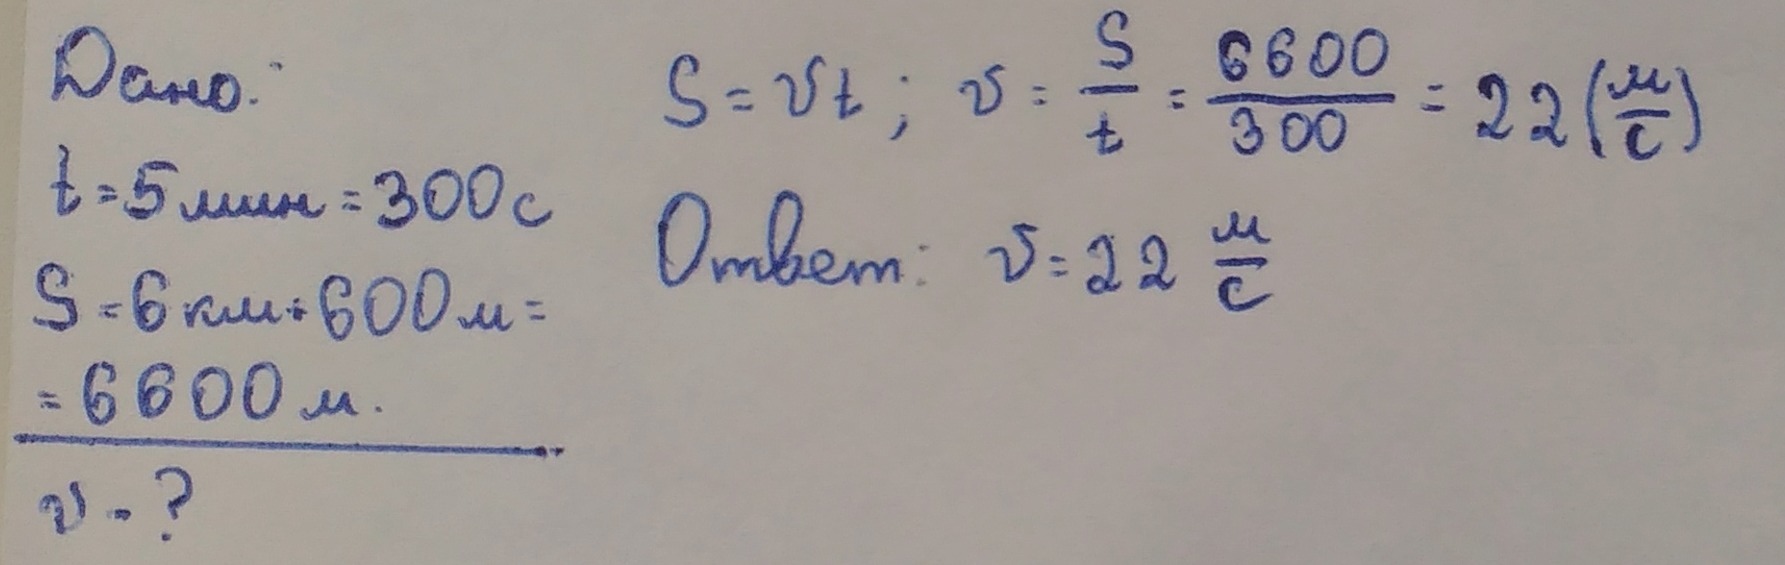 Дано:
t=5мин=300с
S=6км+600м=
=6600м.
v-?
S=vt; v=S/t=6600/300=22(м/с)
Ответ: v=22 м/с